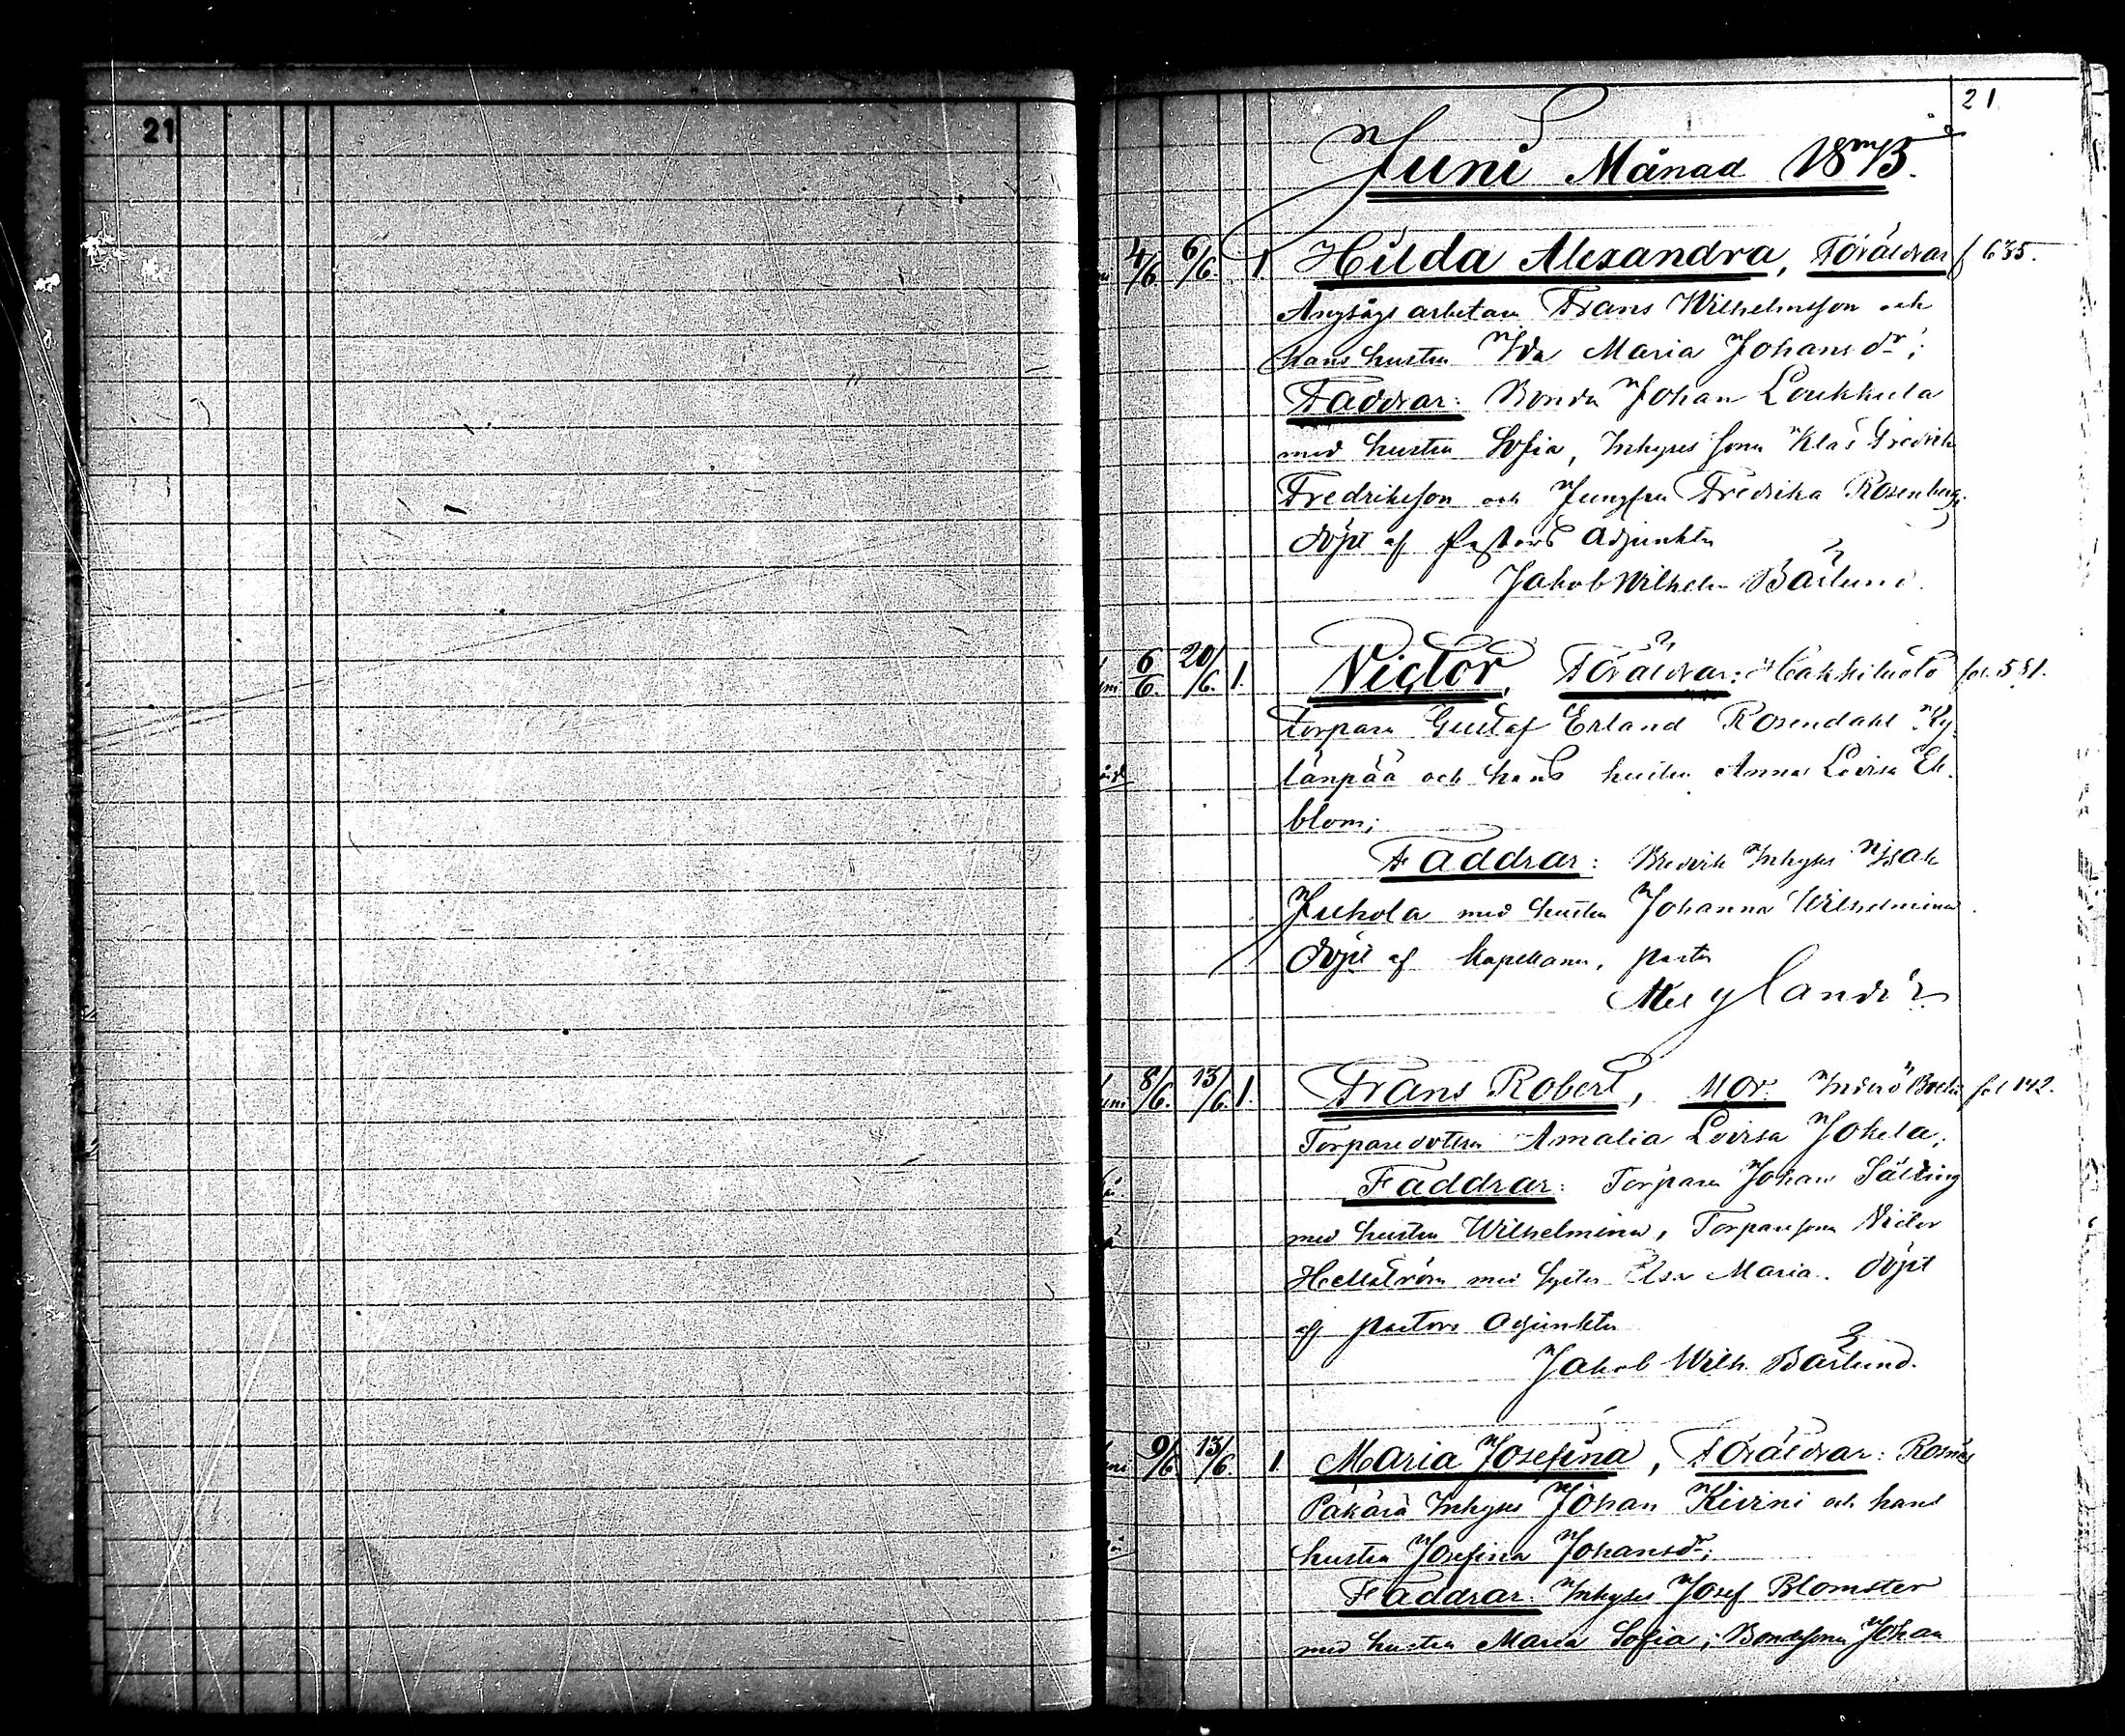 21
21
Juni Månad 1875.
4/6 6/6 1 Hilda Alexandra, Föräldrar f 635.
Ångsågs arbetare Frans Wilhelmsson och
hans hustru Ida Maria Johansdr;
Faddrar: Bonden Johan Loukkula
med hustru Sofia, Inhyses sonen Klas Fredrik
Fredriksson och Jungfru Fredrika Rosenberg.
döpt af Pastors Adjunkten
Jakob Wilhelm Bäcklund.
6/6. 20/6. 1. Victor, Föräldrar: fol. 581.
torpare Gustaf Erland Rosendahl Ky-
länpää och hans hustru Anna Lovisa Ek-
blom;
Faddrar: Inhyses Isak
Juhola med hustru Johanna Wilhelmina
döpt af Kapellanen, pastor
8/6. 13/6. 1. Frans Robert, Mor: fol 142.
Torparedottren Amalia Lovisa Jokela;
Faddrar: Torparen Johan Sälling
med hustru Wilhelmina, Torparesonen Victor
Hellström med syster Elsa Maria. döpt
af pastors Adjunkten
Jakob Wilh. Bäcklund.
9/6 13/6 1. Maria Josefina, Föräldrar: Rosnäs
Päkärä Inhyses Johan Kivini och hans
hustru Josefina Johansdr;
Faddrar: Inhyses Josef Blomster
med hustru Maria Sofia; Bondesonen Johan